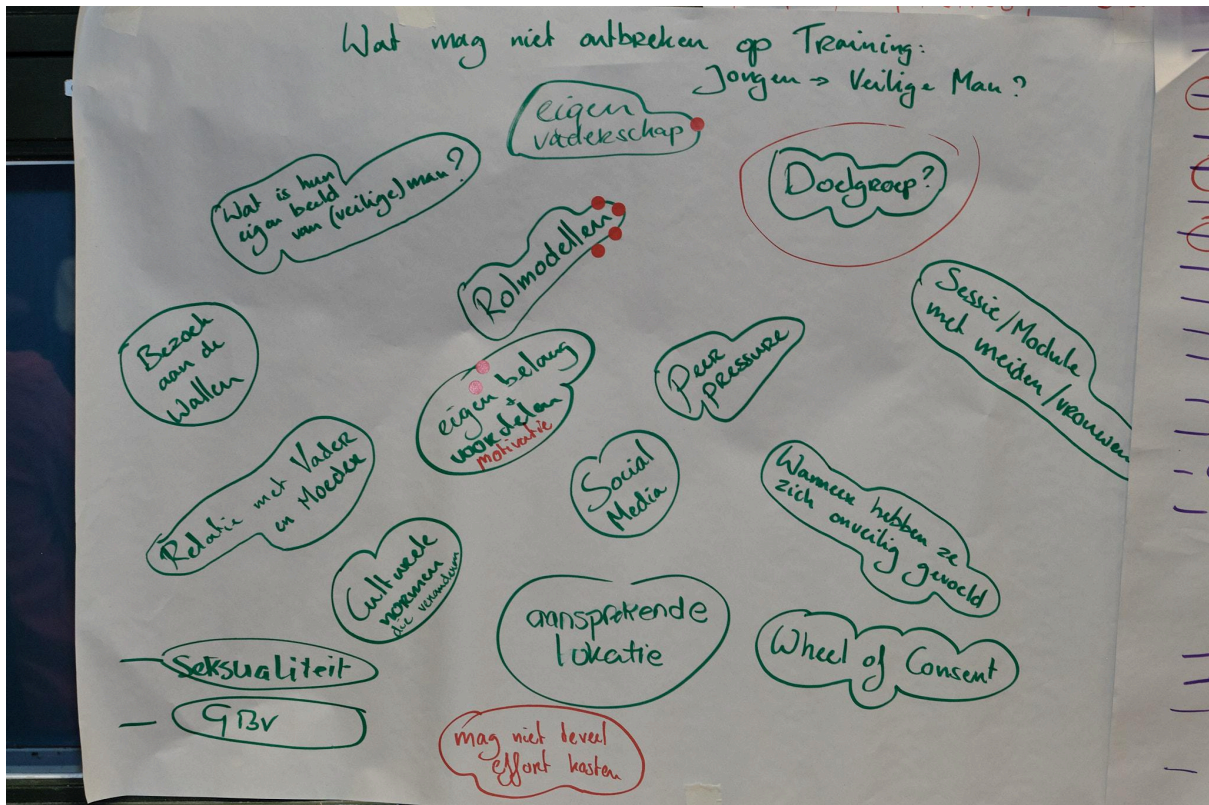 Wat mag niet ontbreken op Training:
Jongen → Veilige Man?
eigen
vaderschap
Doelgroep?
Wat is hun
eigen beeld
van (veilige) man?
Rolmodellen
Sessie/Module
met meiden/vrouwen
Bezoek
aan de
Wallen
eigen belang
+
voordelen
motivatie
Peer
pressure
Social
Media
Wanneer hebben ze
zich onveilig gevoeld
Relatie met Vader
en Moeder
Culturele
normen
die veranderen
aansprekende
lokatie
Wheel of Consent
— Seksualiteit
— GBV
mag niet teveel
effort kosten